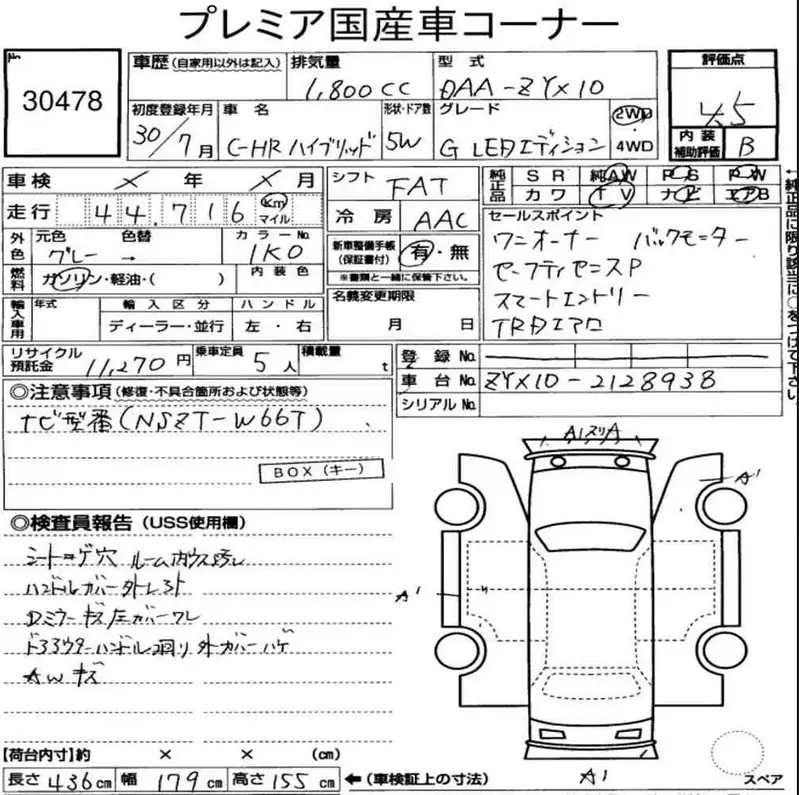 プレミア国産車コーナー
No.
30478
車歴 (自家用以外は記入)
排気量
1,800cc
型式
DAA-ZYX10
評価点
4.5
初度登録年月
30/7月
車名
C-HR ハイブリッド
形状・ドア数
5W
グレード
G LEDエディション
2WD
4WD
内装
補助評価
B
車検 × 年 × 月
シフト
FAT
純正品
SR 純AW PS PW
カワ TV ナビ エアB
走行 44,716 Km
マイル
冷房 AAC
セールスポイント
ワンオーナー バックモニター
セーフティセンスP
スマートエントリー
TRDエアロ
外色
元色 色替
グレー →
カラーNo.
1K0
新車整備手帳
(保証書付)
有・無
※書類と一緒に保管下さい。
燃料
ガソリン・軽油・( )
内装色
名義変更期限
月 日
輸入車用
年式
輸入区分
ディーラー・並行
ハンドル
左・右
←純正品に限り該当に○をつけて下さい。
リサイクル
預託金
11,270円
乗車定員
5人
積載量
t
登録No.
車台No. ZYX10-2128938
シリアルNo.
◎注意事項(修復・不具合箇所および状態等)
ナビ型番(NSZT-W66T)
BOX(キー)
◎検査員報告(USS使用欄)
シートコゲ穴 ルーム内ウス汚レ
ハンドルカバー外レ
Dミラーキズ 左カバーワレ
ドアアウターハンドル廻り 外カバーハゲ
AWキズ
A1スリA
A1
A1
A1
スペア
【荷台内寸】約 × × (cm)
長さ 436cm 幅 179cm 高さ 155cm ←(車検証上の寸法)